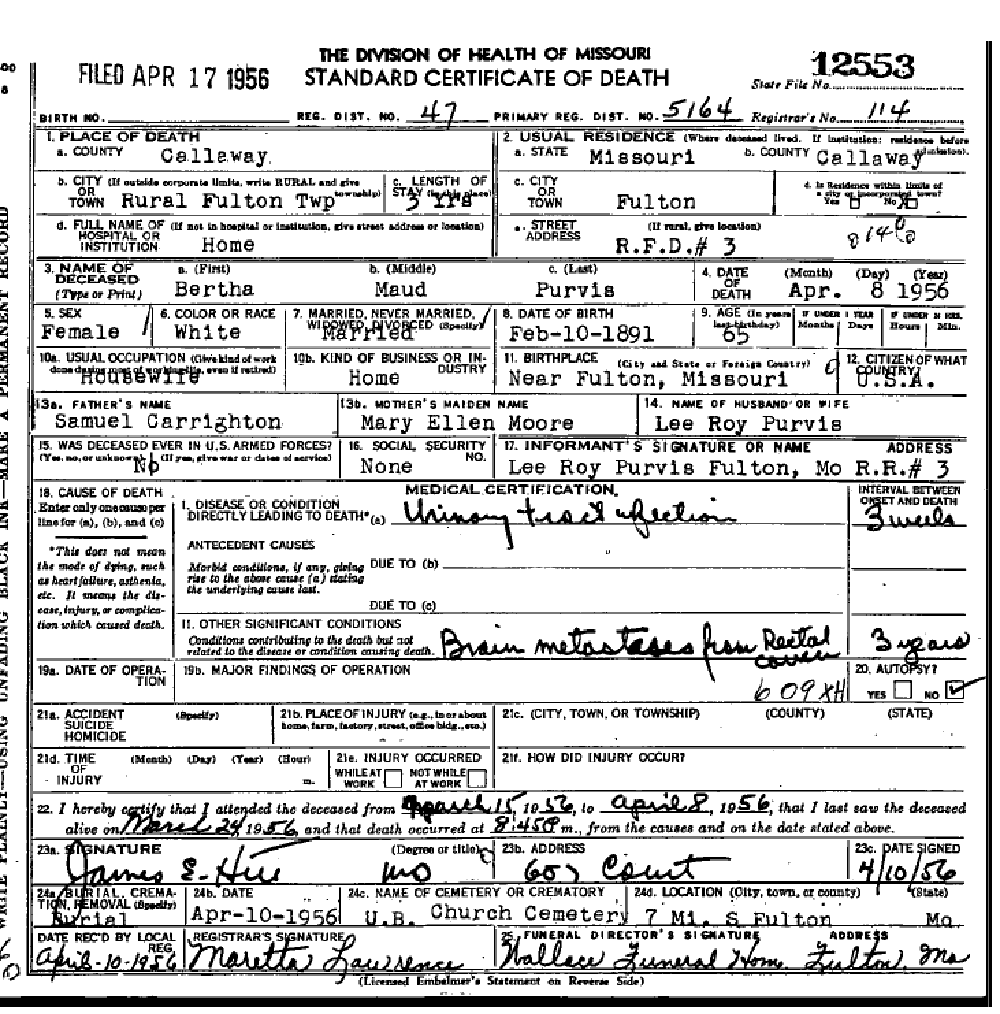 THE DIVISION OF HEALTH OF MISSOURI
FILED APR 17 1956 STANDARD CERTIFICATE OF DEATH
12553
State File No.
BIRTH NO. REG. DIST. NO. 47 PRIMARY REG. DIST. NO. 5164 Registrar's No. 114
1. PLACE OF DEATH
a. COUNTY Callaway.
2. USUAL RESIDENCE (Where deceased lived. If institution: residence before admission).
a. STATE Missouri b. COUNTY Callaway
b. CITY (If outside corporate limits, write RURAL and give township)
OR TOWN Rural Fulton Twp
c. LENGTH OF STAY (in this place) 3 Yrs
c. CITY OR TOWN Fulton
d. Is Residence within limits of a city or incorporated town?
Yes No X
d. FULL NAME OF (If not in hospital or institution, give street address or location)
HOSPITAL OR INSTITUTION Home
e. STREET ADDRESS (If rural, give location)
R.F.D.# 3
3. NAME OF DECEASED (Type or Print)
a. (First) Bertha
b. (Middle) Maud
c. (Last) Purvis
4. DATE OF DEATH (Month) (Day) (Year)
Apr. 8 1956
5. SEX
Female
6. COLOR OR RACE
White
7. MARRIED, NEVER MARRIED, WIDOWED, DIVORCED (Specify)
Married
8. DATE OF BIRTH
Feb-10-1891
9. AGE (In years last birthday) 65
IF UNDER 1 YEAR Months Days
IF UNDER 24 HRS. Hours Min.
10a. USUAL OCCUPATION (Give kind of work done during most of working life, even if retired)
Housewife
10b. KIND OF BUSINESS OR INDUSTRY
Home
11. BIRTHPLACE (City and State or Foreign Country)
Near Fulton, Missouri
12. CITIZEN OF WHAT COUNTRY?
U.S.A.
13a. FATHER'S NAME
Samuel Carrighton
13b. MOTHER'S MAIDEN NAME
Mary Ellen Moore
14. NAME OF HUSBAND OR WIFE
Lee Roy Purvis
15. WAS DECEASED EVER IN U.S. ARMED FORCES?
(Yes, no, or unknown) (If yes, give war or dates of service)
No
16. SOCIAL SECURITY NO.
None
17. INFORMANT'S SIGNATURE OR NAME ADDRESS
Lee Roy Purvis Fulton, Mo R.R.# 3
18. CAUSE OF DEATH
Enter only one cause per line for (a), (b), and (c)
*This does not mean the mode of dying, such as heart failure, asthenia, etc. It means the disease, injury, or complication which caused death.
MEDICAL CERTIFICATION
INTERVAL BETWEEN ONSET AND DEATH
I. DISEASE OR CONDITION
DIRECTLY LEADING TO DEATH* (a) Urinary tract infection 3 weeks
ANTECEDENT CAUSES
Morbid conditions, if any, giving rise to the above cause (a) stating the underlying cause last.
DUE TO (b)
DUE TO (c)
II. OTHER SIGNIFICANT CONDITIONS
Conditions contributing to the death but not related to the disease or condition causing death.
Brain metastases from Rectal cancer 3 years
19a. DATE OF OPERATION
19b. MAJOR FINDINGS OF OPERATION
609XH
20. AUTOPSY?
YES NO
21a. ACCIDENT SUICIDE HOMICIDE (Specify)
21b. PLACE OF INJURY (e.g., in or about home, farm, factory, street, office bldg., etc.)
21c. (CITY, TOWN, OR TOWNSHIP) (COUNTY) (STATE)
21d. TIME OF INJURY (Month) (Day) (Year) (Hour) m.
21e. INJURY OCCURRED
WHILE AT WORK NOT WHILE AT WORK
21f. HOW DID INJURY OCCUR?
22. I hereby certify that I attended the deceased from March 15, 1956, to April 8, 1956, that I last saw the deceased
alive on March 29, 1956, and that death occurred at 8:45P m., from the causes and on the date stated above.
23a. SIGNATURE (Degree or title)
James E. Hill MD
23b. ADDRESS
607 Court
23c. DATE SIGNED
4/10/56
24a. BURIAL, CREMATION, REMOVAL (Specify)
Burial
24b. DATE
Apr-10-1956
24c. NAME OF CEMETERY OR CREMATORY
U.B. Church Cemetery
24d. LOCATION (City, town, or county) (State)
7 Mi. S Fulton Mo
DATE REC'D BY LOCAL REG.
April-10-1956
REGISTRAR'S SIGNATURE
Maretta Lawrence
25. FUNERAL DIRECTOR'S SIGNATURE ADDRESS
Wallace Funeral Home Fulton, Mo
(Licensed Embalmer's Statement on Reverse Side)
WRITE PLAINLY—USING UNFADING BLACK INK—MAKE A PERMANENT RECORD